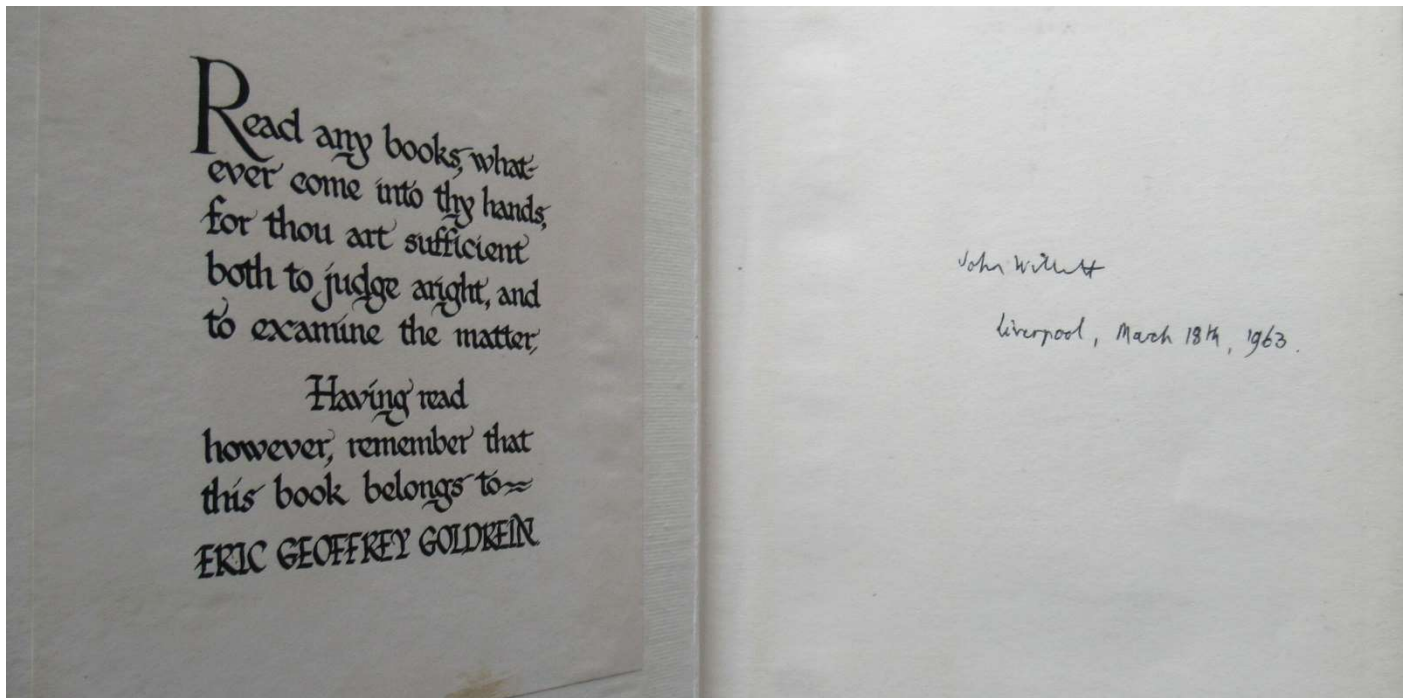 Read any books, what-
ever come into thy hands,
for thou art sufficient
both to judge aright, and
to examine the matter,
Having read
however, remember that
this book belongs to~
ERIC GEOFFREY GOLDREIN
John Willett
Liverpool, March 18th, 1963.